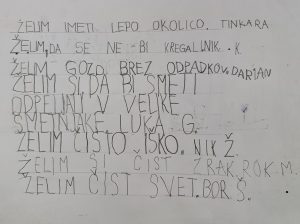 ŽELIM IMETI LEPO OKOLICO. TINKARA
ŽELIM, DA SE NE BI KREGAL. NIK. K.
ŽELIM GOZD BREZ ODPADKOV. DARIAN
ŽELIM SI, DA BI SMETI
ODPELJALI V VELIKE
SMETNJAKE. LUKA G.
ŽELIM ČISTO NIK Ž.
ŽELIM SI ČIST ZRAK. ROK M.
ŽELIM ČIST SVET. BOR Š.